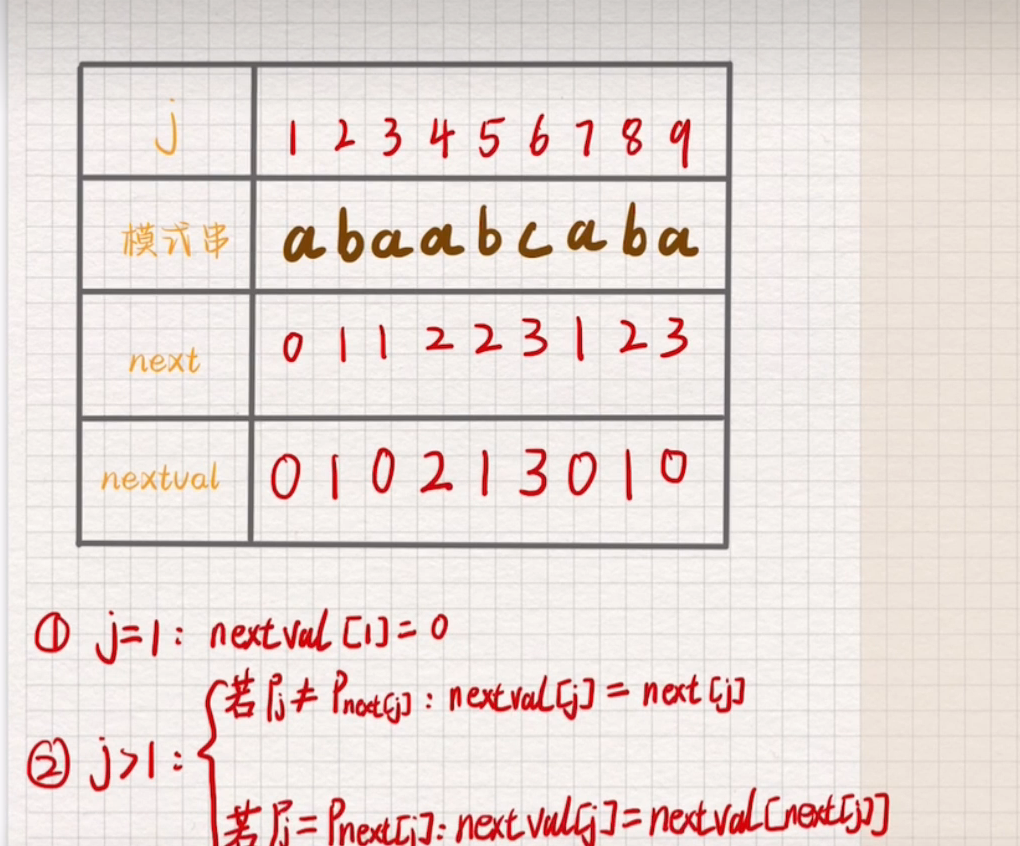 j 1 2 3 4 5 6 7 8 9
模式串 a b a a b c a b a
next 0 1 1 2 2 3 1 2 3
nextval 0 1 0 2 1 3 0 1 0
① j=1: nextval[1]=0
若Pj≠Pnext[j]: nextval[j]=next[j]
② j>1:
若Pj=Pnext[j]: nextval[j]=nextval[next[j]]